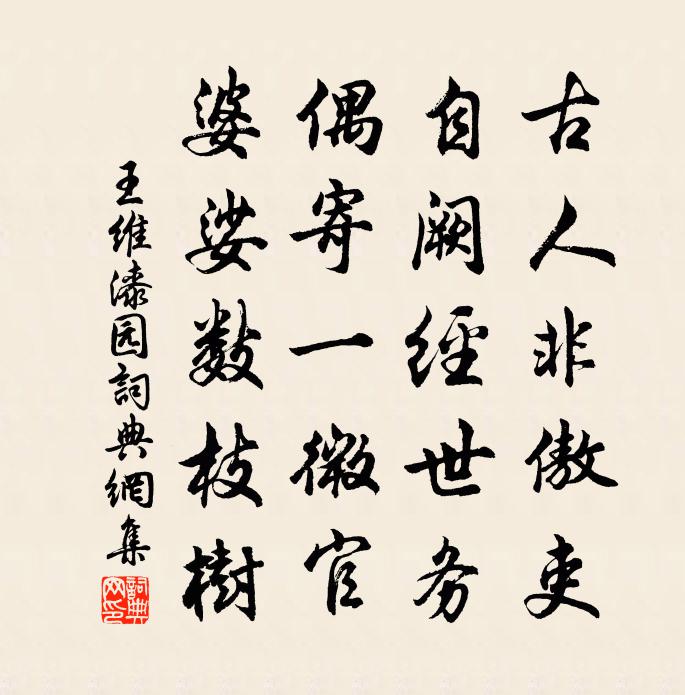 古人非傲吏
自闕經世务
偶寄一微官
婆娑数枝樹
王维漆园詞典網集
詞典网印